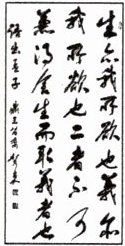 生亦我所欲也義亦
我所欲也二者不可
兼得舍生而取義者也
語出孟子